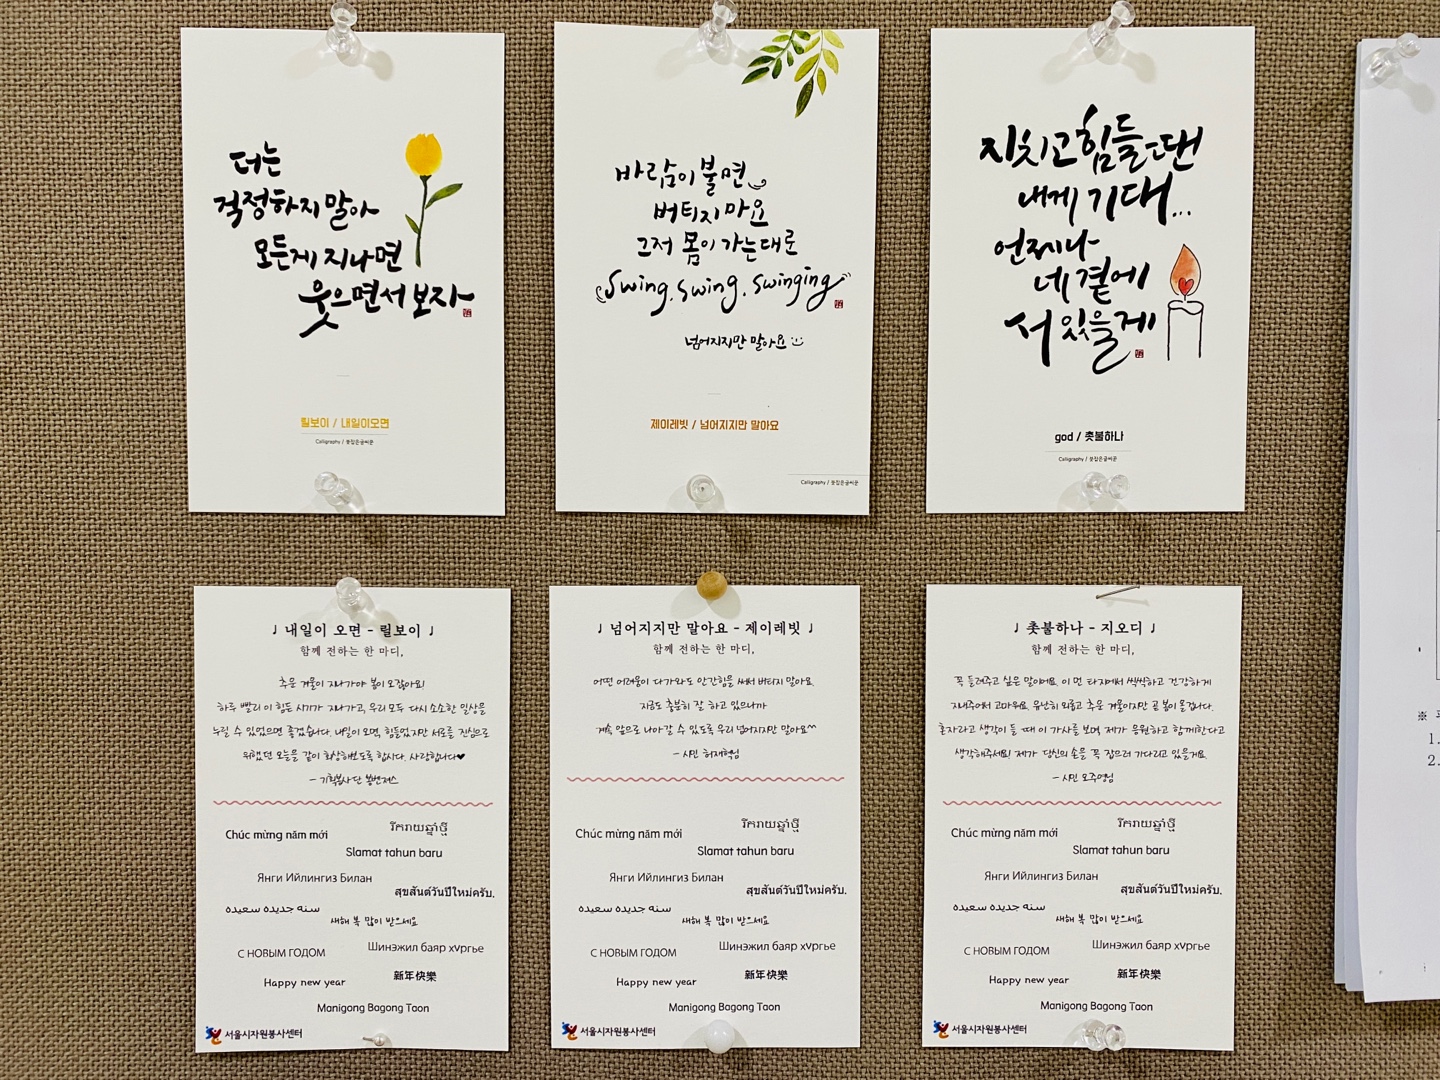 너는
걱정하지 말아
모든게 지나면
웃으면서 보자
릴보이 / 내일이오면
Calligraphy / 꽃잡은글씨꾼
바람이 불면
버티지 마요
그저 몸이 가는대로
Swing, swing, swinging
넘어지지만 말아요
제이레빗 / 넘어지지만 말아요
Calligraphy / 꽃잡은글씨꾼
지치고 힘들 땐
내게 기대...
언제나
네 곁에
서 있을게
god / 촛불하나
Calligraphy / 꽃잡은글씨꾼
♩ 내일이 오면 - 릴보이 ♩
함께 전하는 한 마디,
추운 겨울이 지나가야 봄이 오잖아요!
하루 빨리 이 힘든 시기가 지나가고, 우리 모두 다시 소소한 일상을
누릴 수 있었으면 좋겠습니다. 내일이 오면, 힘들었지만 서로를 진심으로
위했던 오늘을 같이 회상해보도록 합시다. 사랑합니다♥
- 기획봉사단 봉벤져스
Chúc mừng năm mới
រីករាយឆ្នាំថ្មី
Slamat tahun baru
Янги Ийлингиз Билан
สุขสันต์วันปีใหม่ครับ.
سنه جديده سعيده
새해 복 많이 받으세요
С НОВЫМ ГОДОМ
Шинэжил баяр хvргье
Happy new year
新年快樂
Manigong Bagong Taon
서울시자원봉사센터
♩ 넘어지지만 말아요 - 제이레빗 ♩
함께 전하는 한 마디,
어떤 어려움이 다가와도 안간힘을 써서 버티지 말아요.
지금도 충분히 잘 하고 있으니까
계속 앞으로 나아갈 수 있도록 우리 넘어지지만 말아요^^
- 시민 허재혁님
Chúc mừng năm mới
រីករាយឆ្នាំថ្មី
Slamat tahun baru
Янги Ийлингиз Билан
สุขสันต์วันปีใหม่ครับ.
سنه جديده سعيده
새해 복 많이 받으세요
С НОВЫМ ГОДОМ
Шинэжил баяр хvргье
Happy new year
新年快樂
Manigong Bagong Taon
서울시자원봉사센터
♩ 촛불하나 - 지오디 ♩
함께 전하는 한 마디,
꼭 들려주고 싶은 말이에요. 이 먼 타지에서 씩씩하고 건강하게
지내주어서 고마워요. 유난히 외롭고 추운 겨울이지만 곧 봄이 올겁니다.
혼자라고 생각이 들 때 이 가사를 보며, 제가 응원하고 함께한다고
생각해주세요! 제가 당신의 손을 꼭 잡으러 기다리고 있을게요.
- 시민 오주영님
Chúc mừng năm mới
រីករាយឆ្នាំថ្មី
Slamat tahun baru
Янги Ийлингиз Билан
สุขสันต์วันปีใหม่ครับ.
سنه جديده سعيده
새해 복 많이 받으세요
С НОВЫМ ГОДОМ
Шинэжил баяр хvргье
Happy new year
新年快樂
Manigong Bagong Taon
서울시자원봉사센터
※
1.
2.